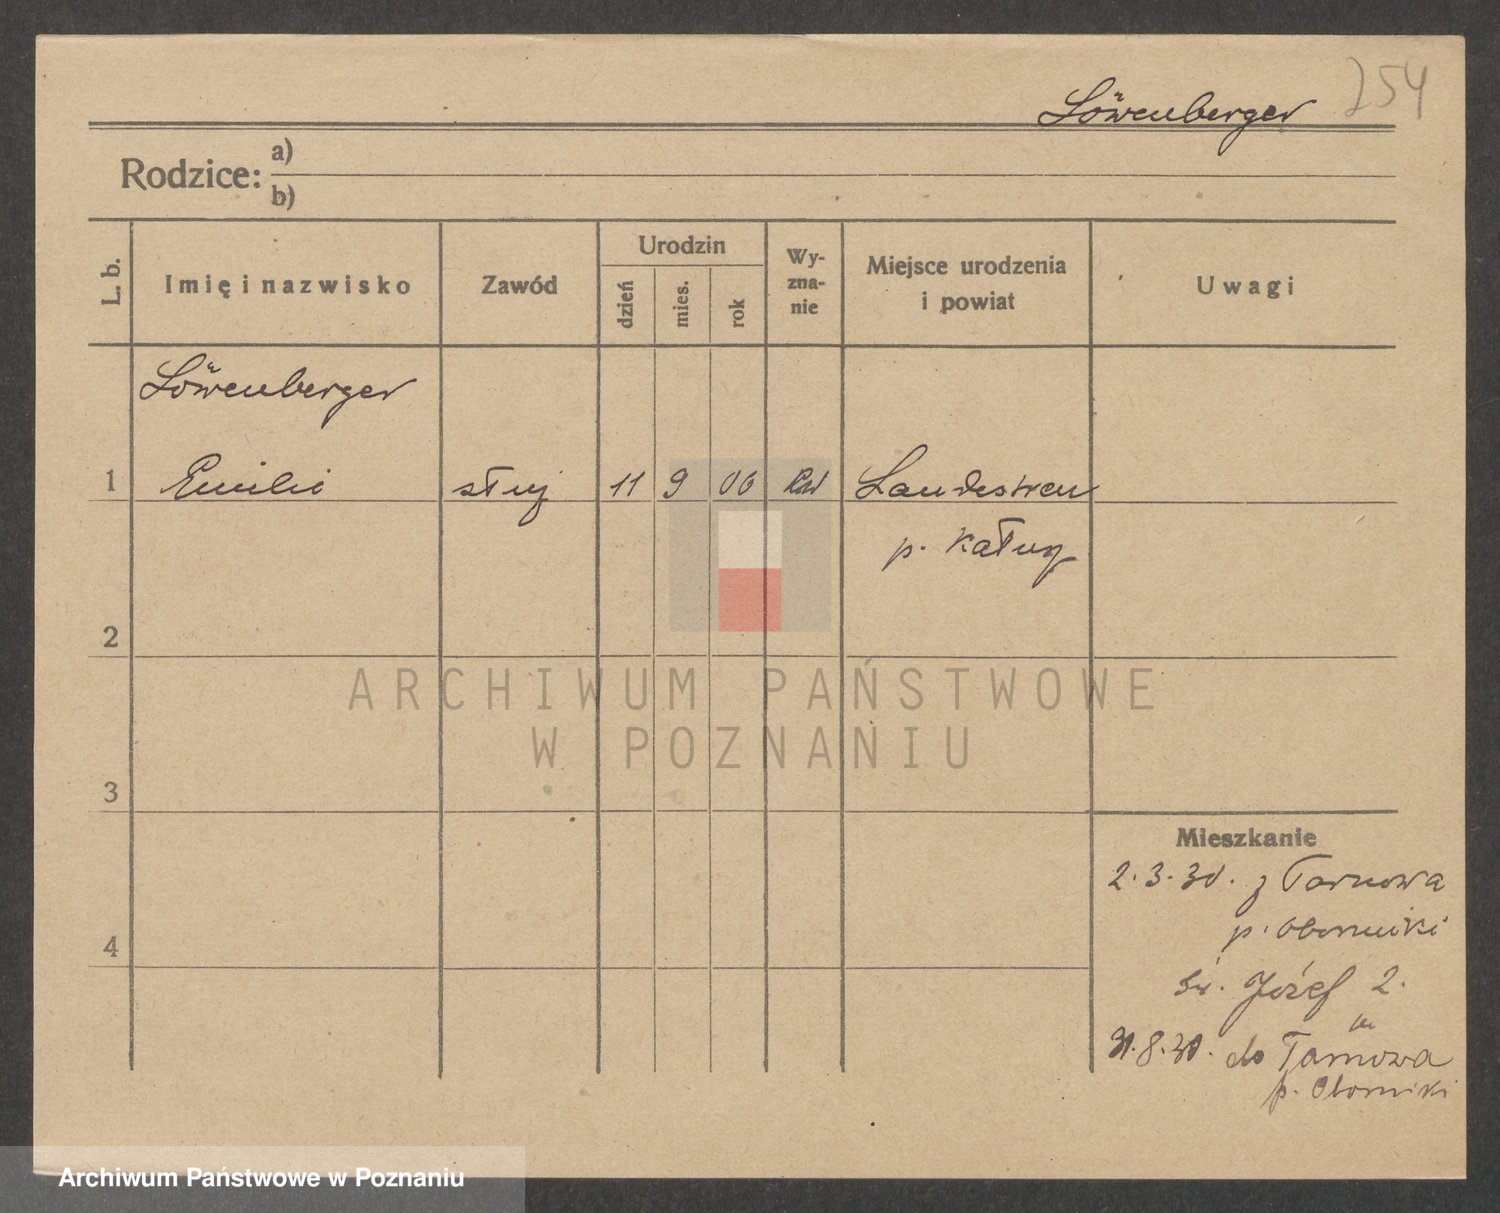 254
Löwenberger
Rodzice: a)
b)
L. b.
Imię i nazwisko
Zawód
Urodzin
dzień
mies.
rok
Wy-
zna-
nie
Miejsce urodzenia
i powiat
Uwagi
Löwenberger
1 Emilie służ 11 9 06 Landestreu
p. Kałusz
2
3
4
Mieszkanie
2.3.30. z Tarnowa
p. Oborniki
Św. Józef 2.
31.8.30. do Tarnowa
p. Oborniki
ARCHIWUM PAŃSTWOWE
W POZNANIU
Archiwum Państwowe w Poznaniu